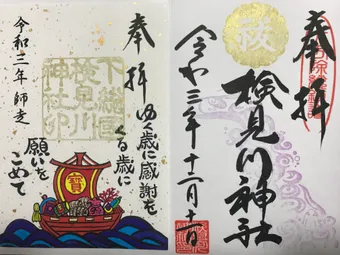 奉拝
ゆく歳に感謝を
くる歳に
願いを
こめて
下総国
検見川
神社印
令和三年 師走
寳
奉拝
検見川神社
令和三年十二月十一日